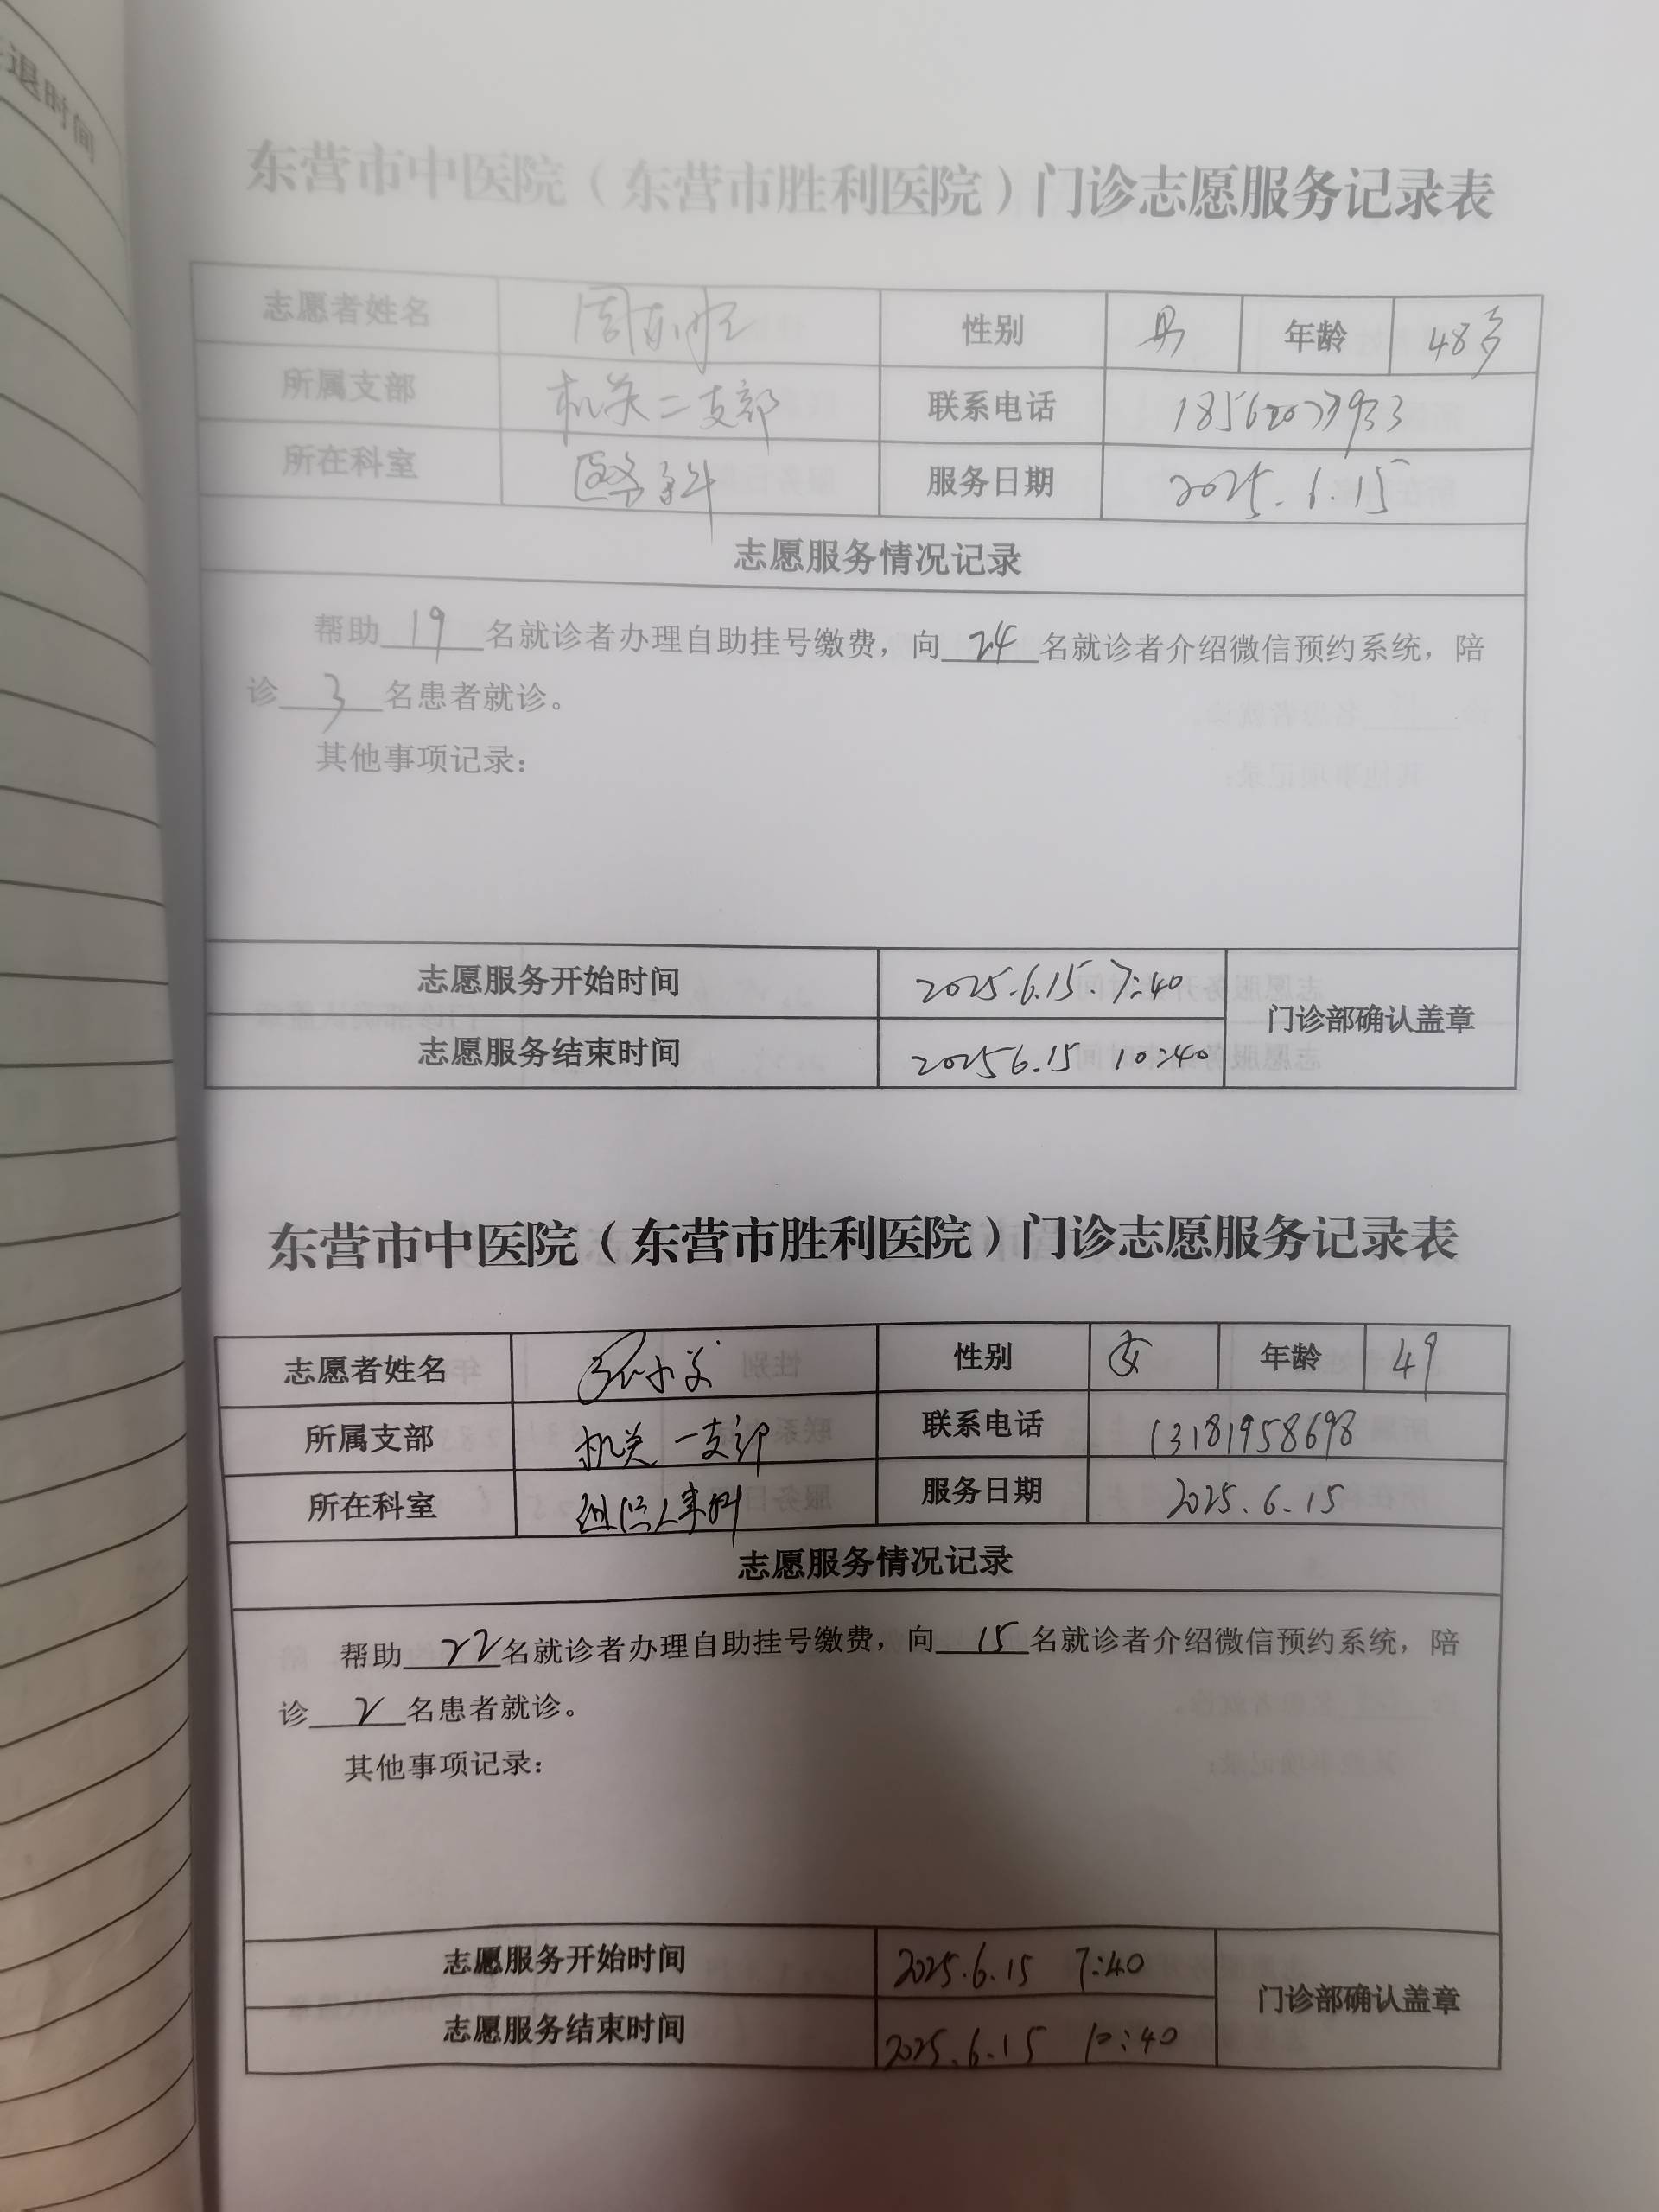 退时间
东营市中医院（东营市胜利医院）门诊志愿服务记录表
志愿者姓名 周 性别 男 年龄 48岁
所属支部 机关二支部 联系电话
所在科室 医务科 服务日期 2025.6.15
志愿服务情况记录
帮助 19 名就诊者办理自助挂号缴费，向 24 名就诊者介绍微信预约系统，陪
诊 3 名患者就诊。
其他事项记录：
志愿服务开始时间 2025.6.15.7:40
门诊部确认盖章
志愿服务结束时间 20256.15 10:40
东营市中医院（东营市胜利医院）门诊志愿服务记录表
志愿者姓名 性别 女 年龄 49
所属支部 机关一支部 联系电话 13181958698
所在科室 组织人事科 服务日期 2025.6.15
志愿服务情况记录
帮助 22 名就诊者办理自助挂号缴费，向 15 名就诊者介绍微信预约系统，陪
诊 2 名患者就诊。
其他事项记录：
志愿服务开始时间 2025.6.15 7:40
门诊部确认盖章
志愿服务结束时间 2025.6.15 10:40